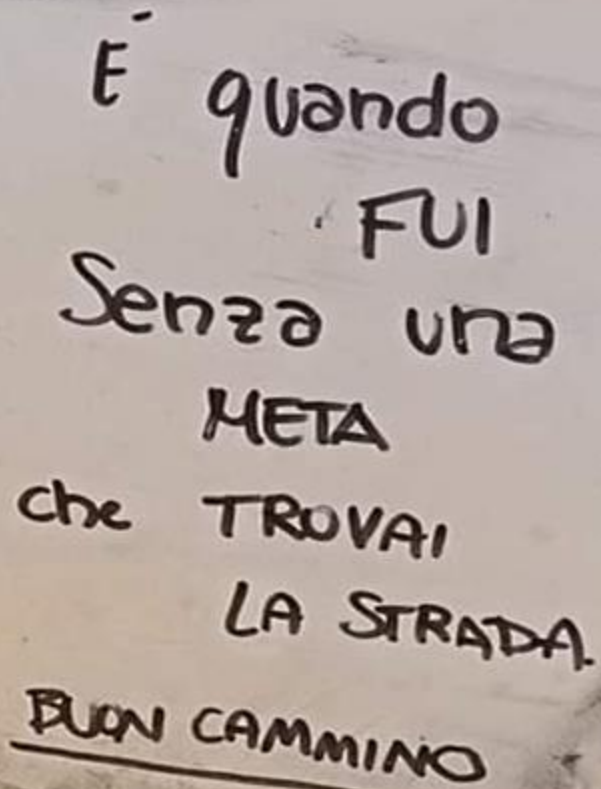 É quando
FUI
Senza una
META
che TROVAI
LA STRADA.
BUON CAMMINO